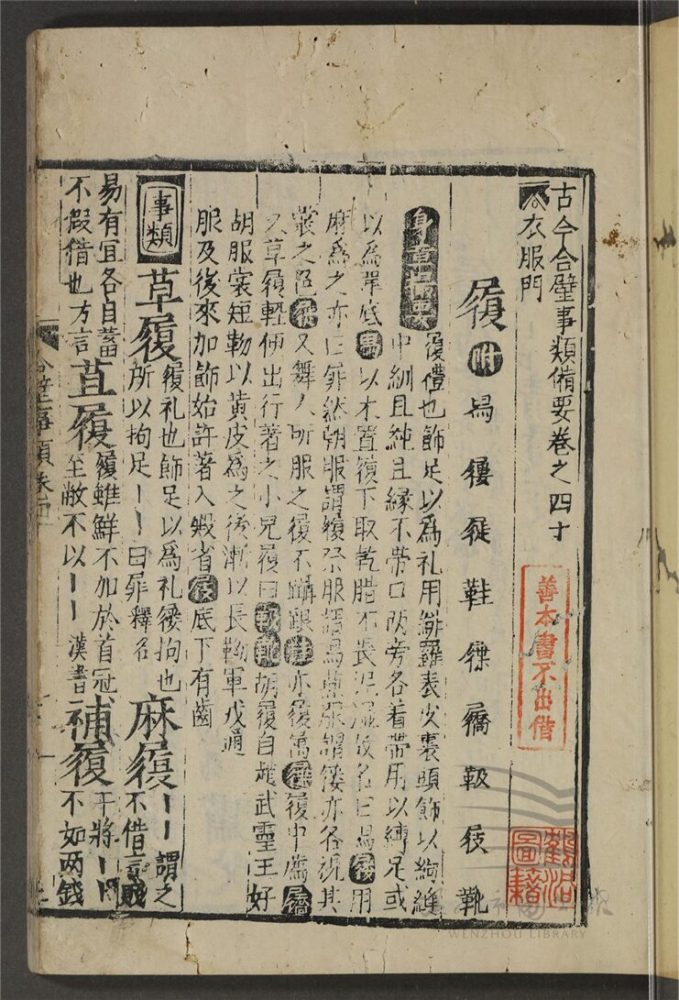 古今合璧事類備要卷之四十
衣服門
履 附 舄 屨 屣 鞋 屧 屩 靸 屐 靴
履禮也飾足以為礼用緋羅表皮裹頭飾以絇繶
中紃且純且緣不帶口兩旁各着帶用以縛足或
以為單底舄以木置履下取乾腊不畏泥濕故名曰舄屨用
麻為之亦曰屝然朝服謂履祭服謂舄燕服謂屨亦各視其
裳之色屣又舞人所服之履不躡跟鞋亦履萬屧履中薦屩
又草履輕便出行著之小兒履曰靸靴胡履自趙武靈王好
胡服裳短靿以黃皮為之後漸以長靿軍戎通
服及後來加飾始許著入殿省屐底下有齒
事類
草履 履礼也飾足以為礼屨拘也
所以拘足一一曰屝釋名
麻屨 一一謂之
不借言賤
易有宜各自蓄
不假借也方言
苴履 履雖鮮不加於首冠
至敝不以一一漢書
補履 干將一
不如兩錢
合璧事類卷四十
善本書不出借
圖籍
WENZHOU LIBRARY